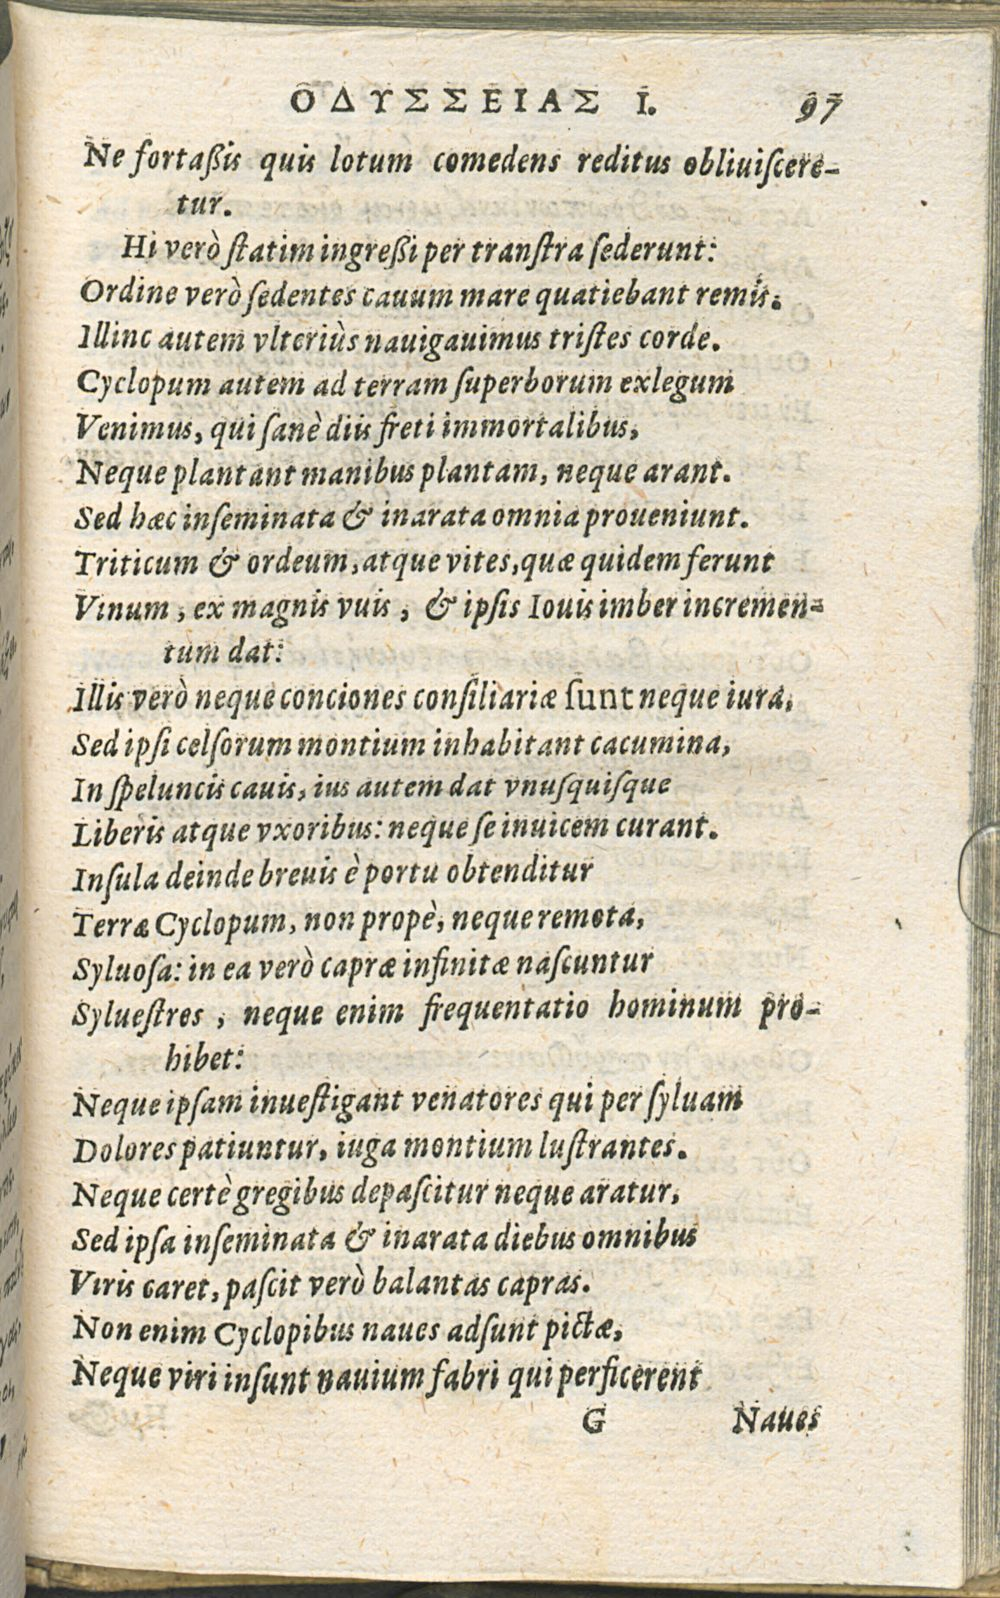 ΟΔΥΣΣΕΙΑΣ Ι. 97
Ne fortaßis quis lotum comedens reditus obliuiſcere-
tur.
Hi verò ſtatim ingreßi per tranſtra ſederunt:
Ordine verò ſedentes cauum mare quatiebant remis.
Illinc autem vlteriùs nauigauimus triſtes corde.
Cyclopum autem ad terram ſuperborum exlegum
Venimus, qui ſanè diis freti immortalibus,
Neque plantant manibus plantam, neque arant.
Sed hæc inſeminata & inarata omnia proueniunt.
Triticum & ordeum, atque vites, quæ quidem ferunt
Vinum, ex magnis vuis, & ipſis Iouis imber incremen-
tum dat:
Illis verò neque conciones conſiliariæ ſunt neque iura,
Sed ipſi celſorum montium inhabitant cacumina,
In ſpeluncis cauis, ius autem dat vnuſquiſque
Liberis atque vxoribus: neque ſe inuicem curant.
Inſula deinde breuis è portu obtenditur
Terræ Cyclopum, non propè, neque remota,
Syluoſa: in ea verò capræ infinitæ naſcuntur
Sylueſtres, neque enim frequentatio hominum pro-
hibet:
Neque ipſam inueſtigant venatores qui per ſyluam
Dolores patiuntur, iuga montium luſtrantes.
Neque certè gregibus depaſcitur neque aratur,
Sed ipſa inſeminata & inarata diebus omnibus
Viris caret, paſcit verò balantas capras.
Non enim Cyclopibus naues adſunt pictæ,
Neque viri inſunt nauium fabri qui perficerent
G Naues